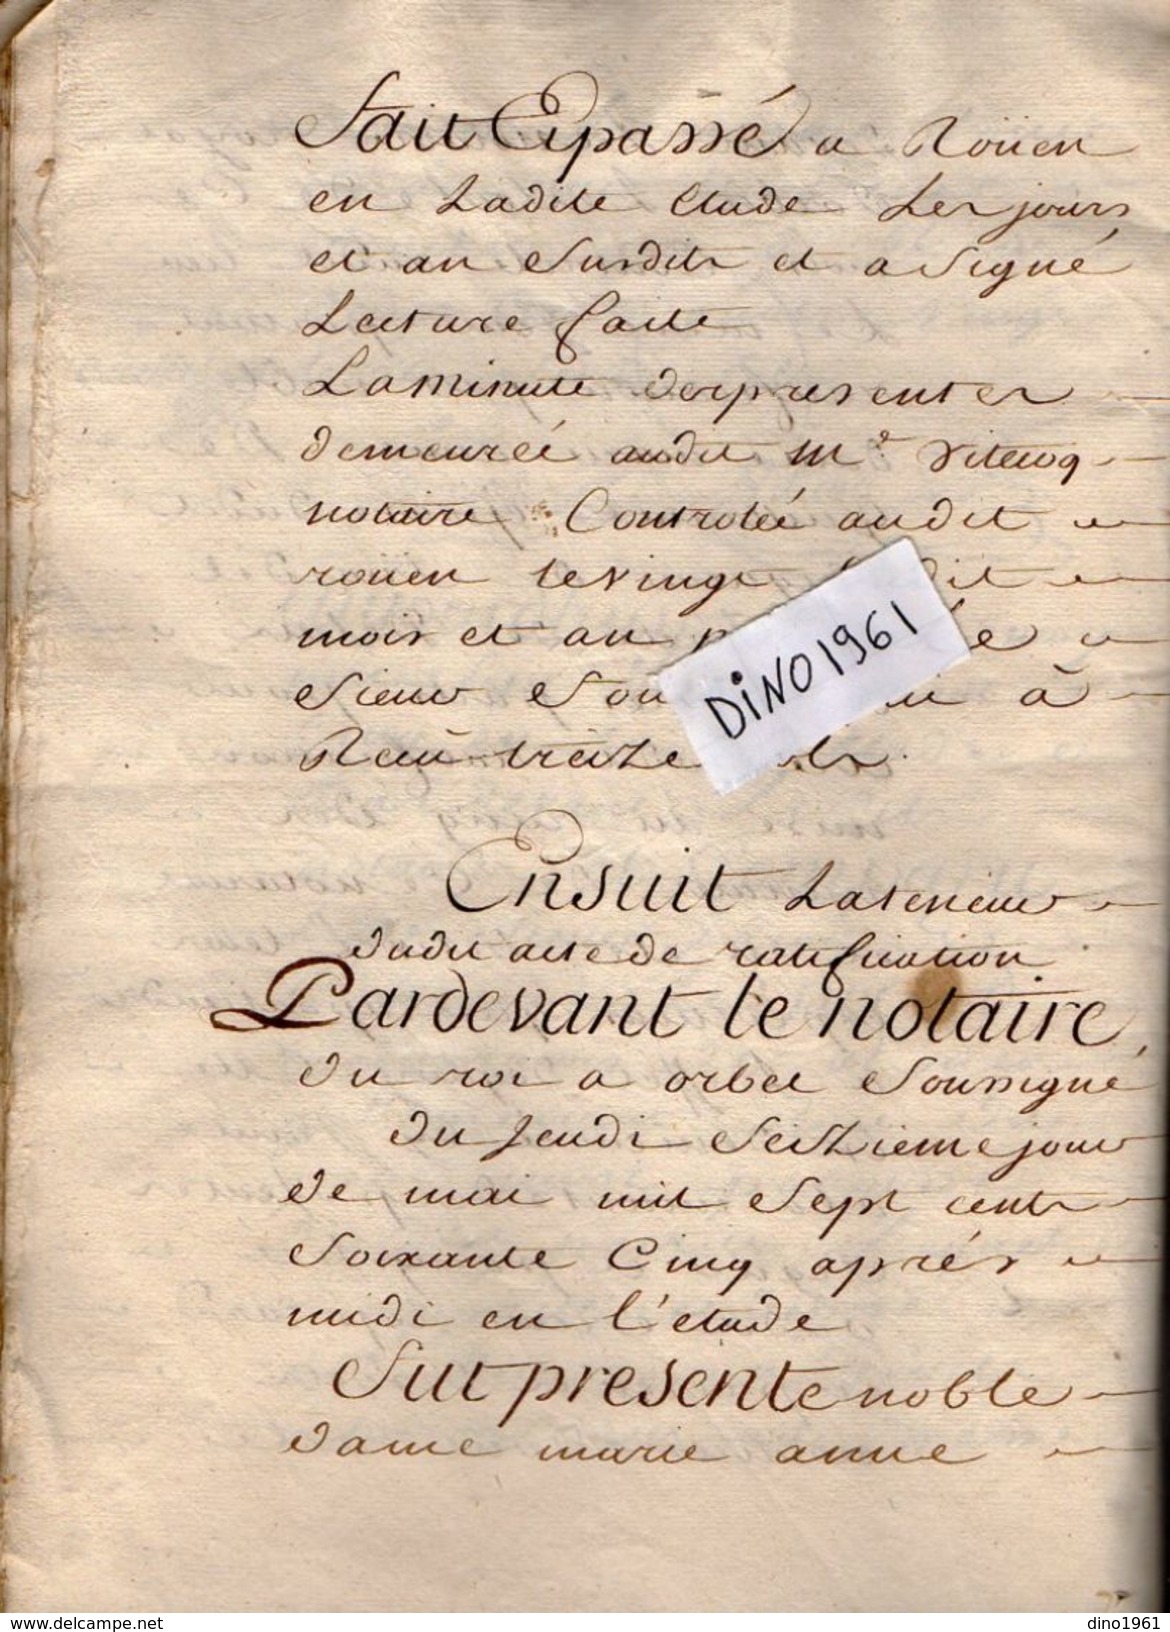 Fait Et passé a Roüen
en Ladite Etude Les jours
et an Susdits et a Signé
Lecture faite
La minute des presentes
demeurée audit Me. Vitecoq
notaire Controlée audit
roüen le vingt dit
mois et an
Sieur à
Reçu treize sols
Ensuit La teneur
dudit acte de ratification
Pardevant le notaire
du roi a orbec Soussigné
du Jeudi Seizieme jour
de mai mil Sept cents
Soixante Cinq aprés
midi en l'étude
Fut presente noble
dame marie anne
DINO1961
dino1961